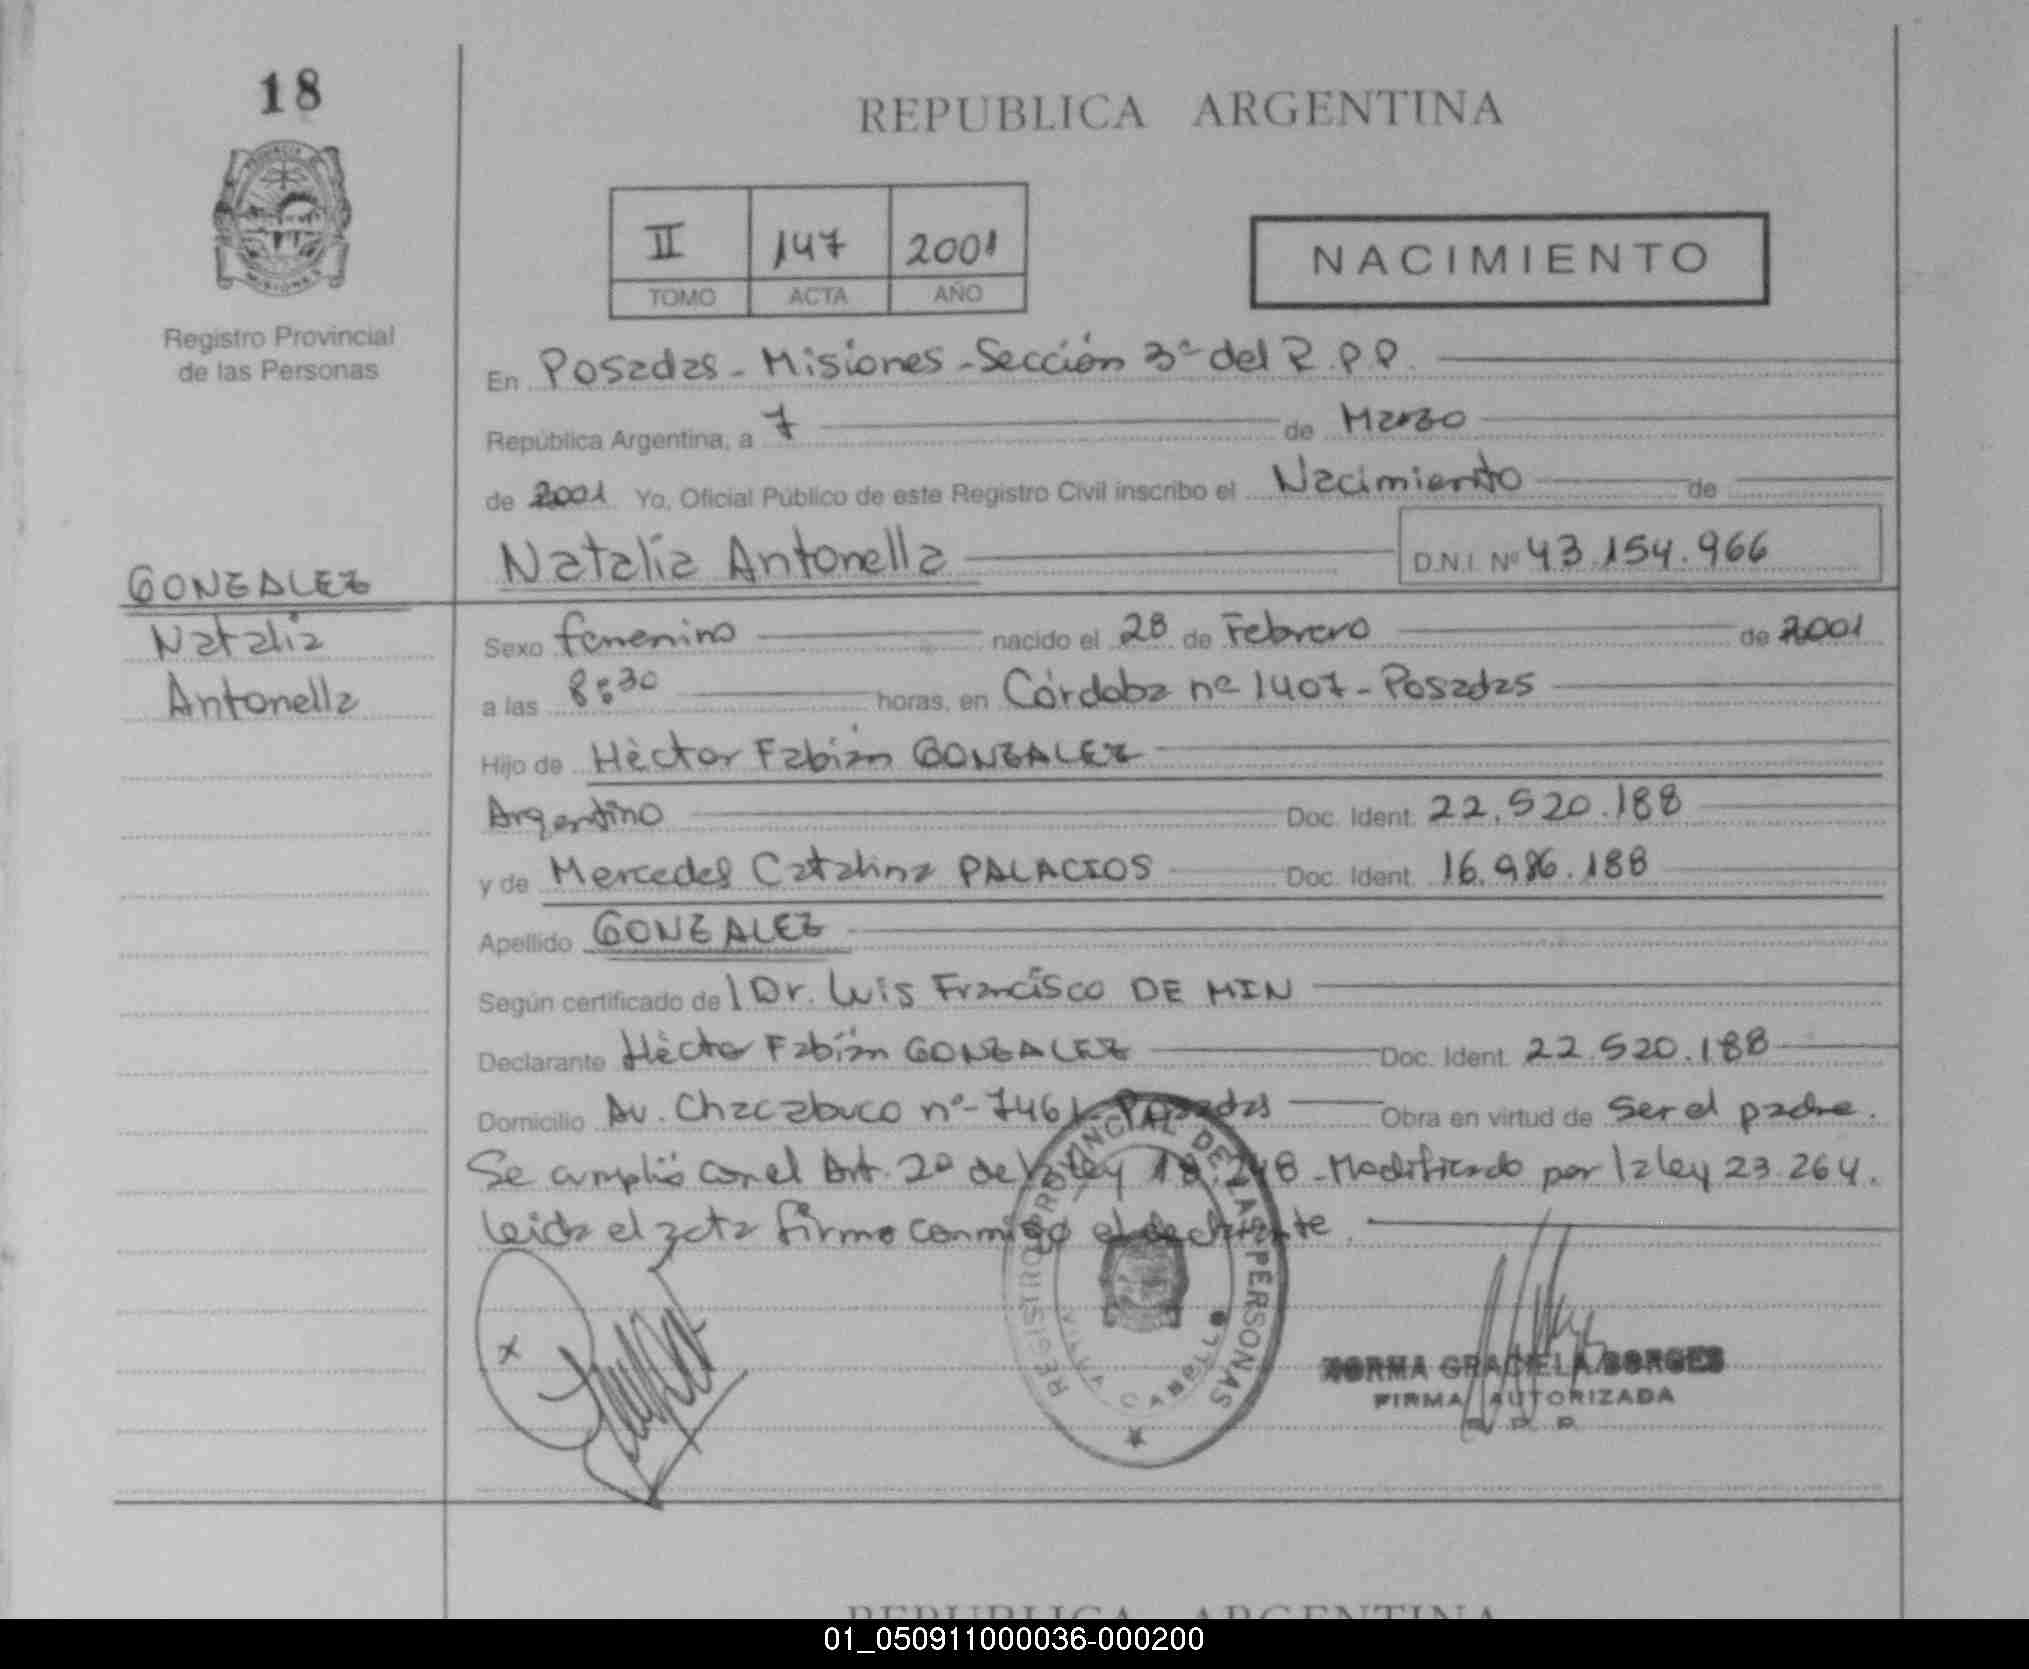 18
REPUBLICA ARGENTINA
PROVINCIA DE
MISIONES
Registro Provincial
de las Personas
II 147 2001
TOMO ACTA AÑO
NACIMIENTO
En Posadas - Misiones - Sección 3ª del R.P.P.
República Argentina, a 7 de Marzo
de 2001 Yo, Oficial Público de este Registro Civil inscribo el Nacimiento de
Natalia Antonella D.N.I. Nº 43.154.966
GONZALEZ
Natalia
Antonella
Sexo femenino nacido el 28 de Febrero de 2001
a las 8:30 horas, en Córdoba nº 1407 - Posadas
Hijo de Hèctor Fabián GONZALEZ
Argentino Doc. Ident. 22.520.188
y de Mercedes Catalina PALACIOS Doc. Ident. 16.986.188
Apellido GONZALEZ
Según certificado de l Dr. Luis Francisco DE MIN
Declarante Hècto Fabián GONZALEZ Doc. Ident. 22.520.188
Domicilio Av. Chacabuco nº- 7461- Posadas Obra en virtud de ser el padre.
Se cumplió con el Art. 2º de la ley 18.248 - Modificado por la ley 23.264.
Leida el acta firma conmigo el declarante.
x
REGISTRO PROVINCIAL DE LAS PERSONAS
NORMA GRACIELA BORGES
FIRMA AUTORIZADA
R. P. P.
REPUBLICA ARGENTINA
01_050911000036-000200